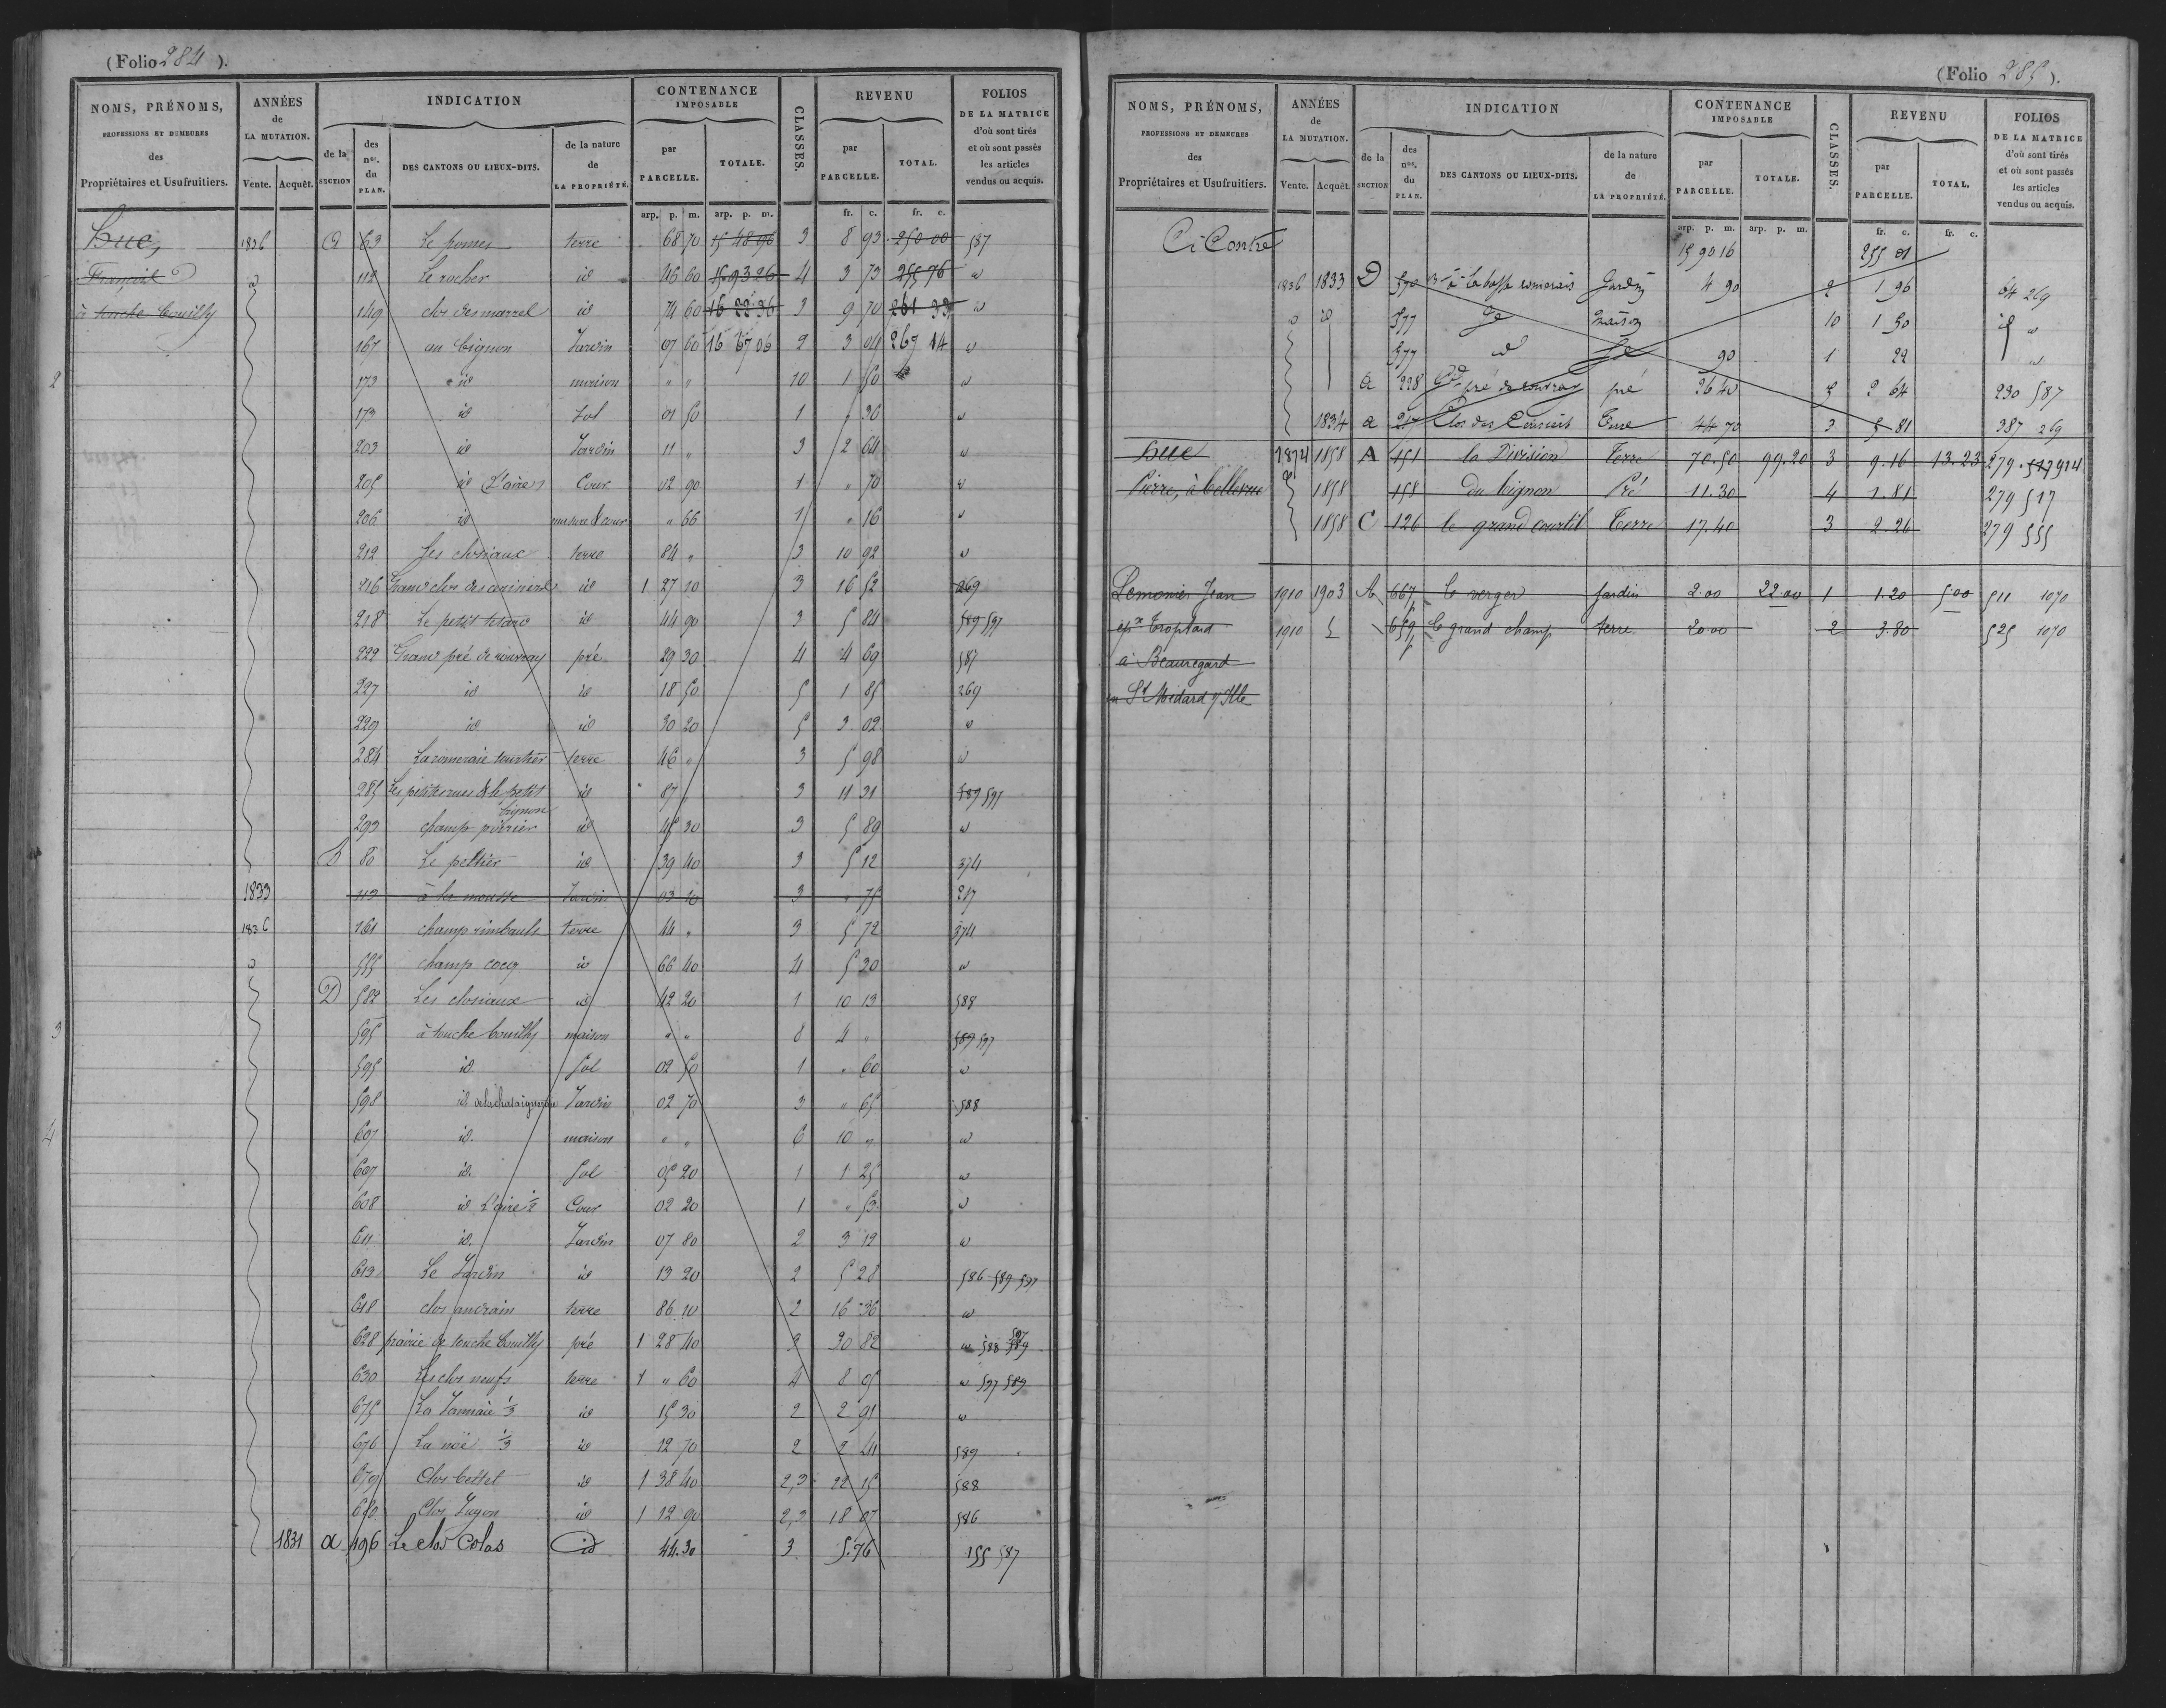 (Folio 284).
NOMS, PRÉNOMS, PROFESSIONS ET DEMEURES des Propriétaires et Usufruitiers.
ANNÉES de LA MUTATION. Vente. Acquêt.
INDICATION de la SECTION des nos. du PLAN. DES CANTONS OU LIEUX-DITS. de la nature de LA PROPRIÉTÉ.
CONTENANCE IMPOSABLE par PARCELLE. TOTALE.
CLASSES.
REVENU par PARCELLE. TOTAL.
FOLIOS DE LA MATRICE d'où sont tirés et où sont passés les articles vendus ou acquis.
arp. p. m. arp. p. m. fr. c. fr. c.
Buc, 1836 63 Le pomes terre 68 70 15 48 96 3 8 93 250 00 587
François id 112 Le rocher id 46 60 15 93 26 4 3 73 255 76 id
à touche Couilly 149 clos desmarrel id 74 60 16 22 36 3 9 70 261 33 id
167 au bignon Jardin 07 60 16 67 06 2 3 04 267 14 id
173 id maison " " 10 1 50 id
173 id Sol 01 50 1 " 36 id
203 id Jardin 11 " 3 2 64 id
205 id L'aire Cour 02 90 1 " 70 id
206 id masure & cour " 66 1 " 16 id
212 Les closiaux terre 84 " 3 10 92 id
216 Grand clos id 1 27 10 3 16 52 269
218 Le petit id 44 90 3 5 84 589 597
222 Grand pré de rouvray pré 29 30 4 4 69 587
227 id id 18 50 5 1 85 269
229 id id 30 20 5 3 02 id
284 La romeraie terre 46 " 3 5 98 id
285 Les petites rues & le petit bignon id 87 " 3 11 31 589 597
293 champ poirier id 45 30 3 5 89 id
80 Le peltier id 39 40 3 5 12 374
1833 113 à la mousse Jardin 03 10 3 " 75 217
1836 161 champ rimbault terre 44 " 3 5 72 374
id 555 champ cocq id 66 40 4 5 30 id
D 582 Les closiaux id 42 20 1 10 13 588
595 à touche Couilly maison " " 8 4 " 589 597
595 id Sol 02 50 1 " 60 id
598 id Jardin 02 70 3 " 65 588
607 id. maison " " 6 10 " id
607 id. Sol 05 20 1 1 25 id
608 id L'aire 1/2 Cour 02 20 1 " 53 id
611 id. Jardin 07 80 2 3 12 id
613 Le Jardin id 13 20 2 5 28 586 589 597
618 clos andrain terre 86 10 2 16 36 id
628 prairie de touche Couilly pré 1 28 40 3 30 82 id 588 589 597
630 Les clos neufs terre 1 " 60 4 8 05 id 597 589
675 La 1/3 id 15 30 2 2 91 id
676 La noë 1/3 id 12 70 2 2 41 589
679 Clos bettel id 1 38 40 2,3 22 15 588
680 Clos Jugon id 1 12 90 2,3 18 07 586
1831 a 196 Le clos Colas id 44.30 3 5.76 155 587
2
3
4
(Folio 285).
NOMS, PRÉNOMS, PROFESSIONS ET DEMEURES des Propriétaires et Usufruitiers.
ANNÉES de LA MUTATION. Vente. Acquêt.
INDICATION de la SECTION des nos. du PLAN. DES CANTONS OU LIEUX-DITS. de la nature de LA PROPRIÉTÉ.
CONTENANCE IMPOSABLE par PARCELLE. TOTALE.
CLASSES.
REVENU par PARCELLE. TOTAL.
FOLIOS DE LA MATRICE d'où sont tirés et où sont passés les articles vendus ou acquis.
arp. p. m. arp. p. m. fr. c. fr. c.
Ci Contre 15 90 16 255 01
1836 1833 D 570 à la basse romerais Jardin 4 90 2 1 96 64 269
id id 577 id Maison 10 1 50 id id
577 id Sol 90 1 22 id
a 228 Gd pré de rouvray pré 26 40 5 2 64 230 587
1834 a 217 Clos des Terre 44 70 3 5 81 387 269
Buc 1874 1858 A 151 la Division Terre 70.50 99.20 3 9.16 13.23 279 914
Pierre, à bellevue id 1858 158 du bignon Pré 11.30 4 1.81 279 517
1858 C 126 le grand courtil Terre 17.40 3 2.26 279 555
Lemonier Jean 1910 1903 A 667p le verger Jardin 2.00 22.00 1 1.20 5.00 511 1070
épx Tropitard 1910 659p le grand champ terre 20.00 2 3.80 525 1070
à Beauregard
en St Médard s/ Ille